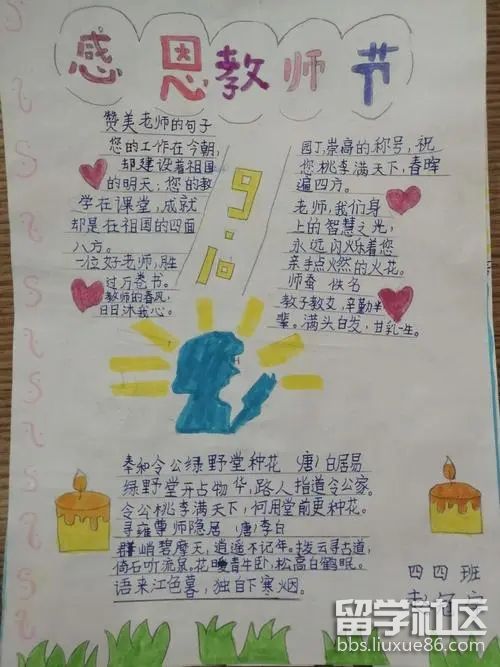 感恩教师节
赞美老师的句子
您的工作在今朝,
却建设着祖国
的明天;您的教
学在课堂,成就
却是在祖国的四面
八方。
一位好老师,胜
过万卷书。
教师的春风,
日日沐我心。
9.10
园丁崇高的称号,祝
您桃李满天下,春晖
遍四方。
老师,我们身
上的智慧之光,
永远闪烁着您
亲手点燃的火花。
师蚕 佚名
教子教女,辛勤半
辈。满头白发,甘乳一生。
奉和令公绿野堂种花 (唐)白居易
绿野堂开占物华,路人指道令公家。
令公桃李满天下,何用堂前更种花。
寻雍尊师隐居 (唐)李白
群峭碧摩天,逍遥不记年。拨云寻古道,
倚石听流泉,花暖青牛卧,松高白鹤眠。
语来江色暮,独自下寒烟。
四四班
留学社区
bbs.liuxue86.com